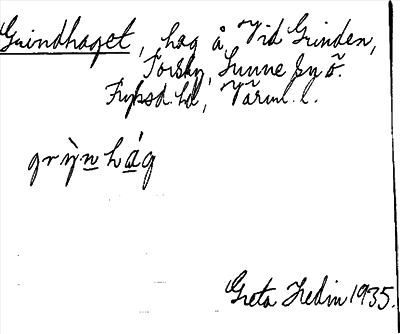 Grindhaget, hag å Vid Grinden,
Torsby, Sunne sn ö.
Fryksd. hd, Värml. l.
grỳn̲há̲g
Greta Hedin 1935.